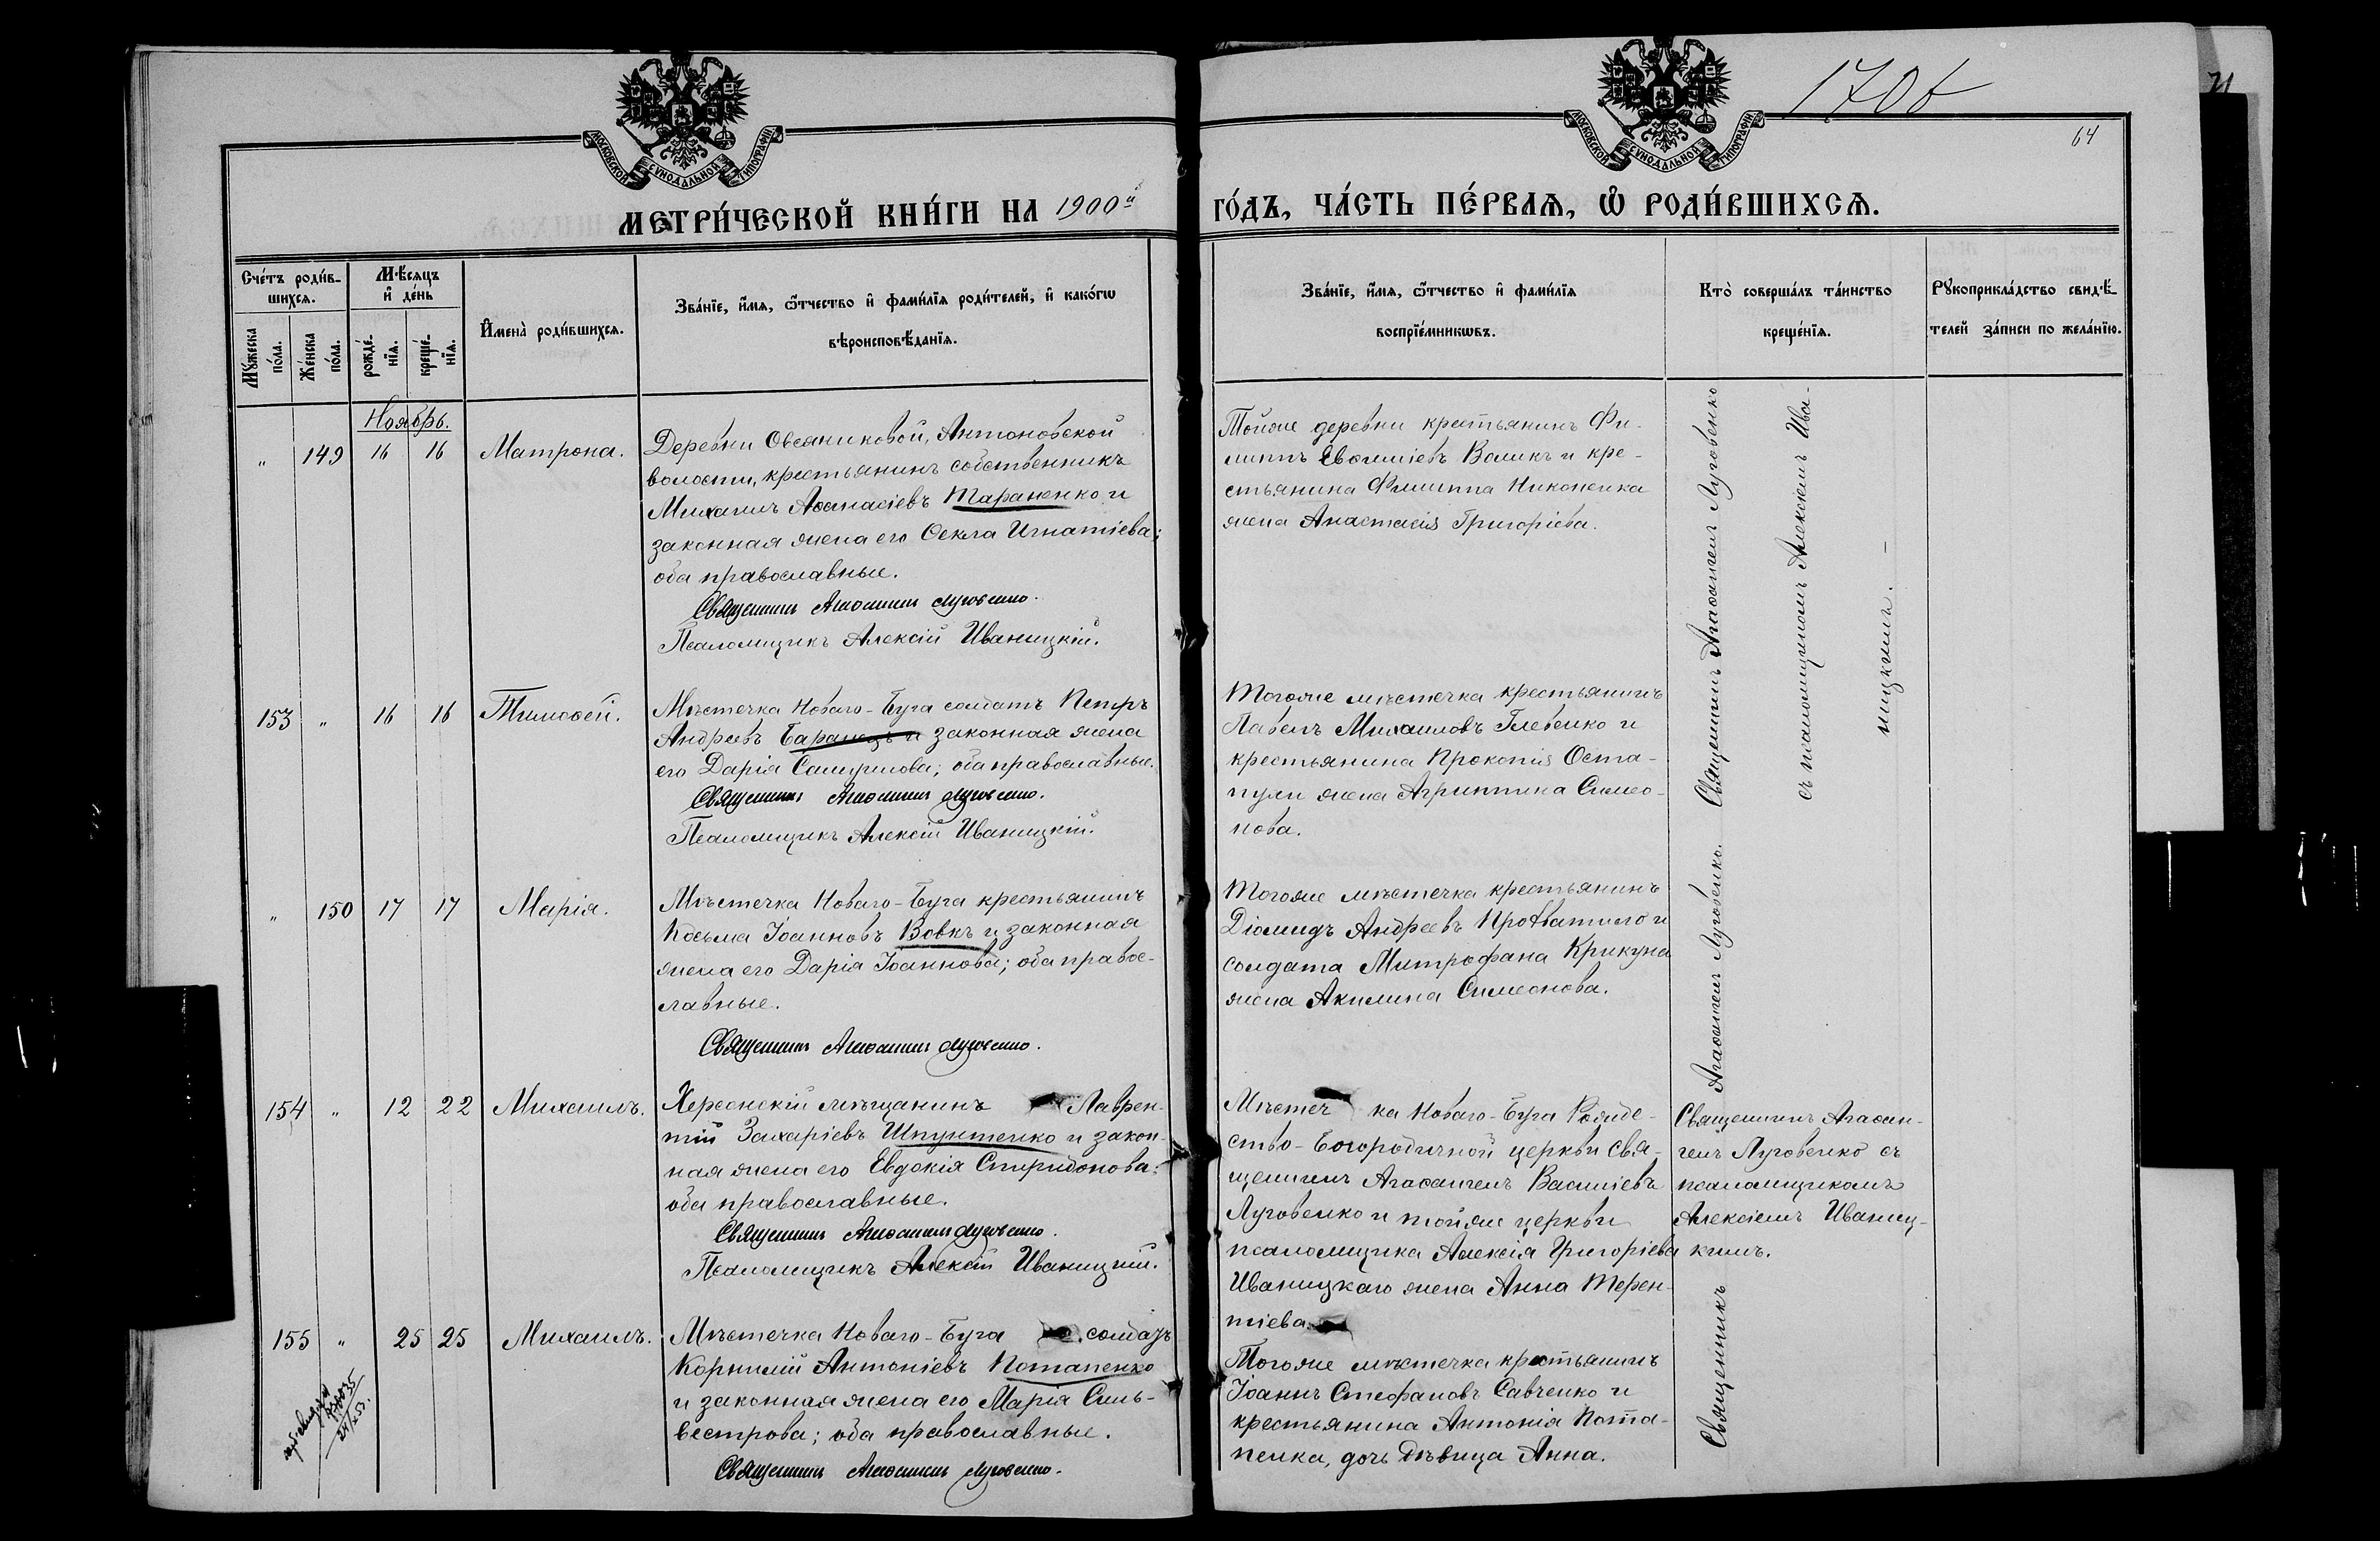 170б
64
МОСКОВСКОЙ СУНОДАЛЬНОЙ ТИПОГРАФІИ
МОСКОВСКОЙ СУНОДАЛЬНОЙ ТИПОГРАФІИ
МЕТРИ́ЧЕСКОЙ КНИ́ГИ НА 1900й ГО́ДЪ, ЧА́СТЬ ПЕ́РВАѦ, Ѡ҆ РОДИ́ВШИХСѦ.
Сче́тъ роди́в-
шихся.
Мꙋ́жеска
по́ла.
Же́нска
по́ла.
Мѣ́сяцъ
и҆ де́нь
рожде́-
нїя.
креще́-
нїя.
И҆мена̀ роди́вшихся.
Зва́нїе, и҆́мя, ѻ҆́тчество и҆ фами́лїя роди́телей, и҆ како́гѡ
вѣроисповѣ́данїя.
Зва́нїе, и҆́мя, ѻ҆́тчество и҆ фами́лїя
воспрїе́мникѡвъ.
Кто̀ соверша́лъ та́инство
креще́нїя.
Рꙋкоприкла́дство свидѣ́-
телей за́писи по жела́нїю.
Ноябрь.
„ 149 16 16 Матрона.
Деревни Овсяниковой, Антоновской
волости, крестьянинъ собственникъ
Михаилъ Аѳанасіевъ Тараненко и
законная жена его Ѳекла Игнатіева;
оба православные.
Священникъ Агаѳангелъ Луговенко.
Псаломщикъ Алексій Иваницкій.
Тойже деревни крестьянинъ Фи-
липпъ Волик и кре-
стьянина Филиппа Никоненка
жена Анастасія Григоріева.
153 „ 16 16 Тимоѳей.
Мѣстечка Новаго-Буга солдатъ Петръ
Андреевъ Баранецъ и законная жена
его Дарія Самуилова; оба православные.
Священникъ Агаѳангелъ Луговенко.
Псаломщикъ Алексій Иваницкій.
Тогоже мѣстечка крестьянинъ
Павелъ Михаиловъ Глебенко и
крестьянина Прокопія Оста-
пули жена Агриппина Симео-
нова.
Священникъ Агаѳангелъ Луговенко
съ псаломщикомъ Алексіемъ Ива-
ницкимъ. —
„ 150 17 17 Марія.
Мѣстечка Новаго-Буга крестьянинъ
Косьма Іоанновъ Вовкъ и законная
жена его Дарія Іоаннова; оба право-
славные.
Священникъ Агаѳангелъ Луговенко.
Тогоже мѣстечка крестьянинъ
Діомидъ Андреевъ и
солдата Митрофана Крикуна
жена Акилина Симеонова.
154 „ 12 22 Михаилъ.
Херсонскій мѣщанинъ Лаврен-
тій Захаріевъ Шпунтенко и закон-
ная жена его Евдокія Спиридонова;
оба православные.
Священникъ Агаѳангелъ Луговенко.
Псаломщикъ Алексій Иваницкій.
Мѣстеч ка Новаго-Буга Рожде-
ство-Богородичной церкви свя-
щенникъ Агаѳангелъ Василіевъ
Луговенко и тойже церкви
псаломщика Алексія Григоріева
Иваницкаго жена Анна Терен-
тіева.
Священникъ Агаѳан-
гелъ Луговенко съ
псаломщикомъ
Алексіемъ Иваниц-
кимъ.
155 „ 25 25 Михаилъ.
Мѣстечка Новаго-Буга солдатъ
Корнилій Антоніевъ Потапенко
и законная жена его Марія Силь-
вестрова; оба православные.
Священникъ Агаѳангелъ Луговенко.
Тогоже мѣстечка крестьянинъ
Іоаннъ Стефановъ Савченко и
крестьянина Антонія Пота-
пенка, дочь дѣвица Анна.
Священникъ Агаѳангелъ Луговенко.